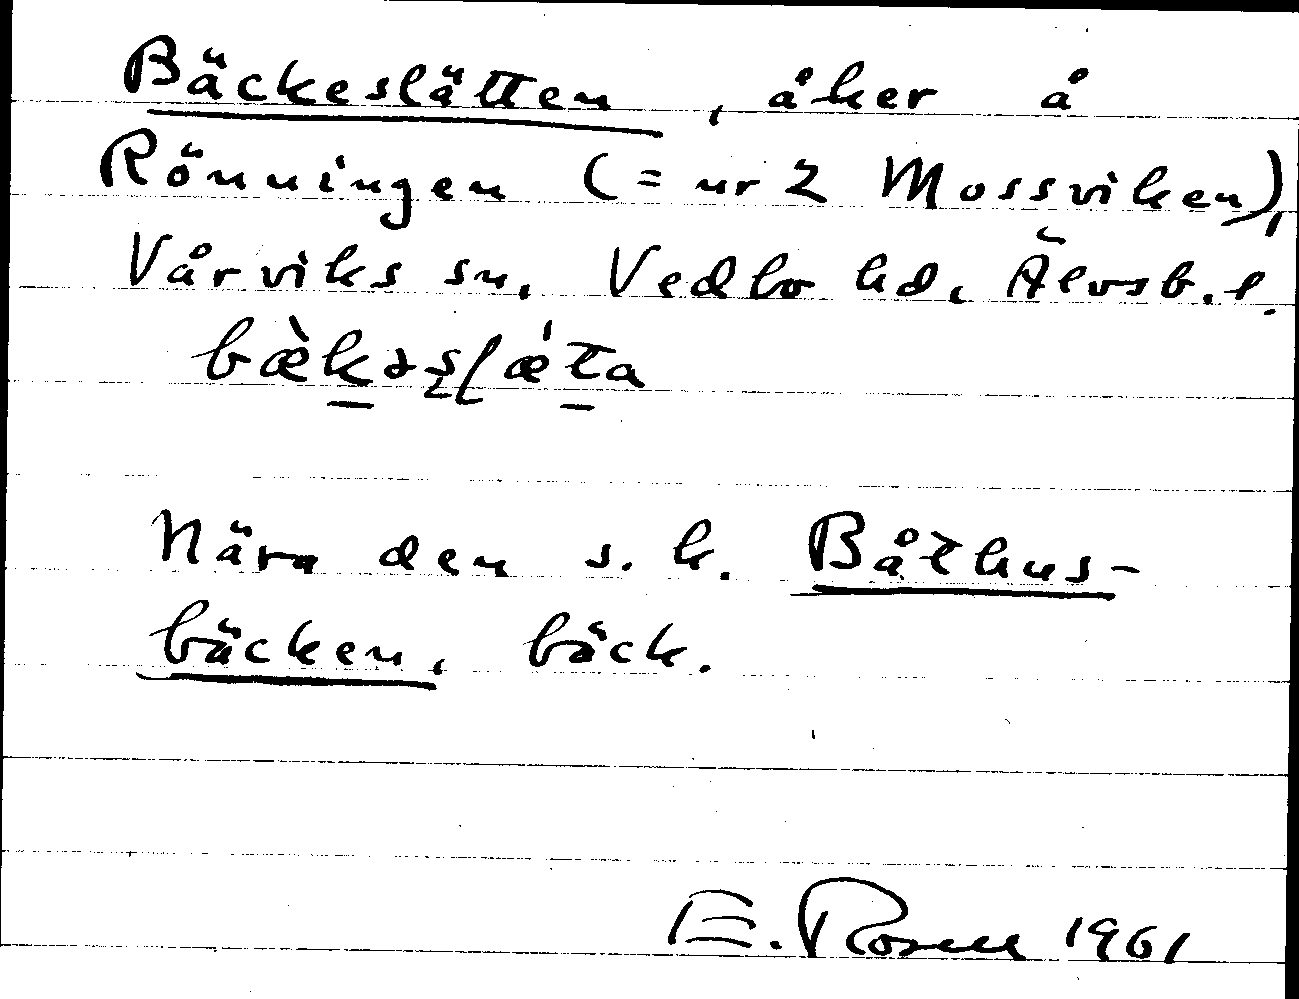 Bäckeslätten, åker å
Rönningen (= nr 2 Mossviken),
Vårviks sn, Vedbo hd, Älvsb. l.
bæ̀kəsl̥ǽta
Nära den s. k. Båthus-
bäcken, bäck.
E. Rosell 1961